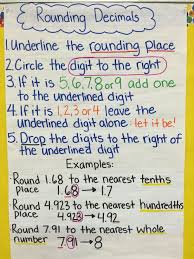 Rounding Decimals
1. Underline the rounding place
2. Circle the digit to the right
3. If it is 5,6,7,8 or 9 add one
to the underlined digit
4. If it is 1,2,3 or 4 leave the
underlined digit alone: let it be!
5. Drop the digits to the right of
the underlined digit
Examples:
Round 1.68 to the nearest tenths
place 1.68 → 1.7
Round 4.923 to the nearest hundredths
place 4.923 → 4.92
Round 7.91 to the nearest whole
number 7.91 → 8